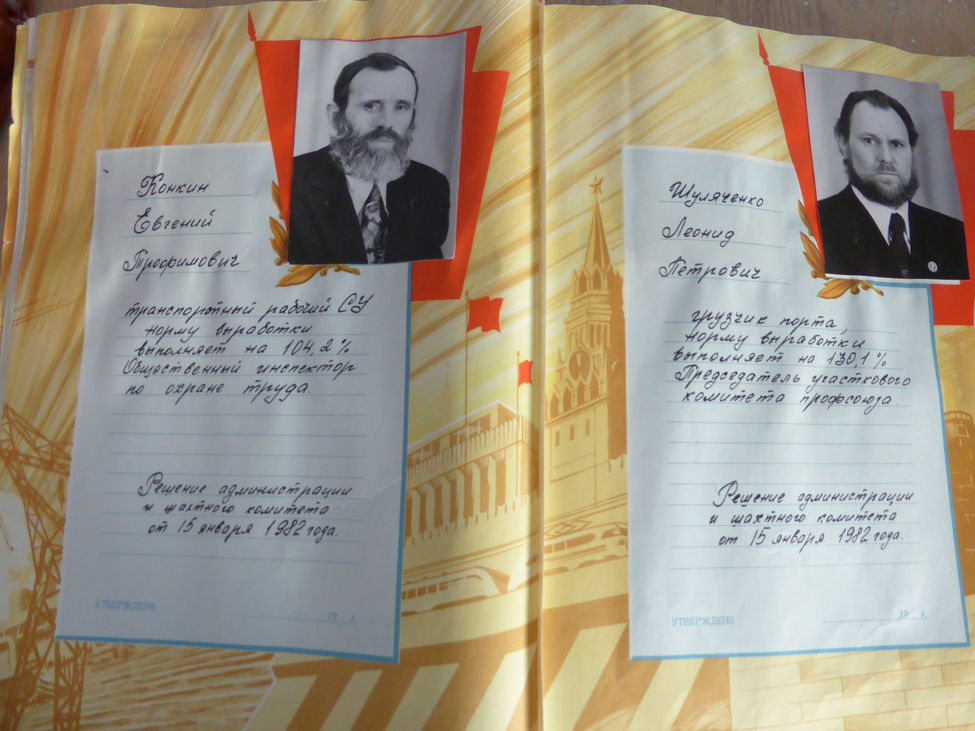 Конкин
Евгений
Трофимович
транспортный рабочий СУ
норму выработки
выполняет на 104,2%
Общественный инспектор
по охране труда.
Решение администрации
и шахтного комитета
от 15 января 1982 года.
УТВЕРЖДЕНО
19 г.
Шуляченко
Леонид
Петрович
грузчик порта,
норму выработки
выполняет на 130,1%
Председатель участкового
комитета профсоюза.
Решение администрации
и шахтного комитета
от 15 января 1982 года.
УТВЕРЖДЕНО
19 г.